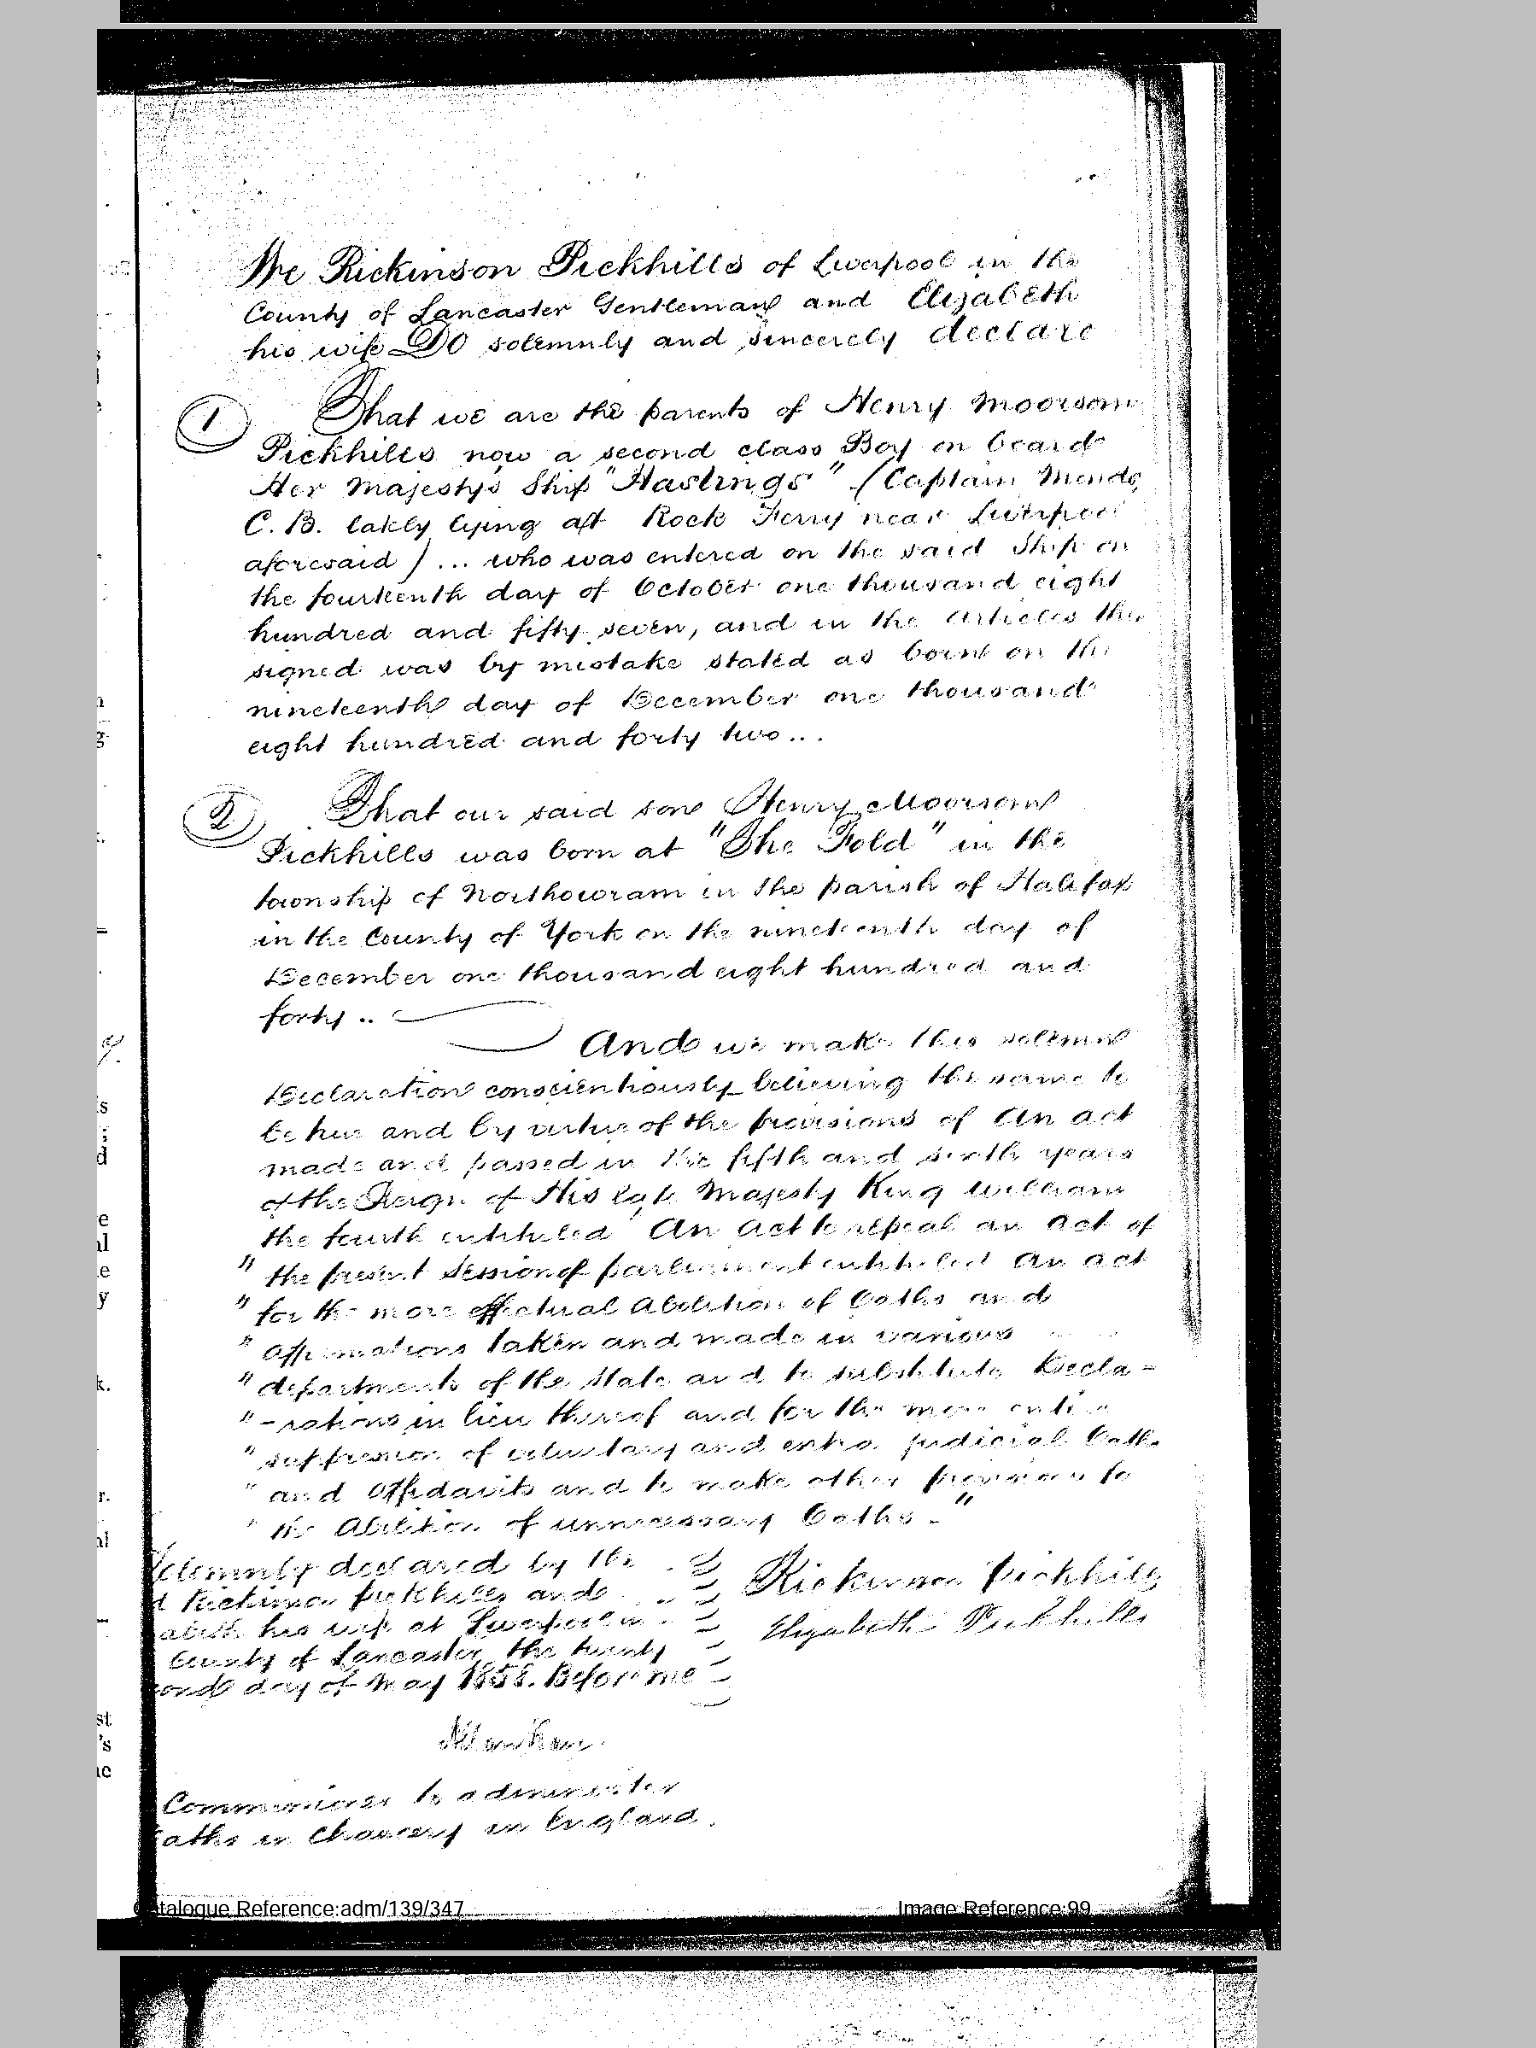 We Rickinson Pickhills of Liverpool in the
County of Lancaster Gentleman and Elizabeth
his wife Do solemnly and sincerely declare
1 That we are the parents of Henry Moorsom
Pickhills now a second class Boy on board
Her Majesty's Ship "Hastings" (Captain Mends
C.B. lately lying at Rock Ferry near Liverpool
aforesaid) ... who was entered on the said Ship on
the fourteenth day of October one thousand eight
hundred and fifty seven, and in the articles then
signed was by mistake stated as born on the
nineteenth day of December one thousand
eight hundred and forty two...
2 That our said son Henry Moorsom
Pickhills was born at "The Fold" in the
township of Northowram in the parish of Halifax
in the County of York on the nineteenth day of
December one thousand eight hundred and
forty ..
And we make this solemn
Declaration conscientiously believing the same to
be true and by virtue of the provisions of an act
made and passed in the fifth and sixth years
of the Reign of His late Majesty King William
the fourth entituled An Act to repeal an Act of
" the present Session of parliament entituled An act
" for the more effectual Abolition of Oaths and
" affirmations taken and made in various
" departments of the State and to substitute Decla-
" -rations in lieu thereof and for the more entire
" suppression of voluntary and extra judicial Oaths
" and Affidavits and to make other provisions for
" the Abolition of unnecessary Oaths -"
Solemnly declared by the
Rickinson Pickhills and
his wife at Liverpool in
County of Lancaster the twenty
day of May 1858. Before me
Rickinson Pickhills
Elizabeth Pickhills
Commissioner to administer
Oaths in Chancery in England.
Catalogue Reference:adm/139/347
Image Reference:99